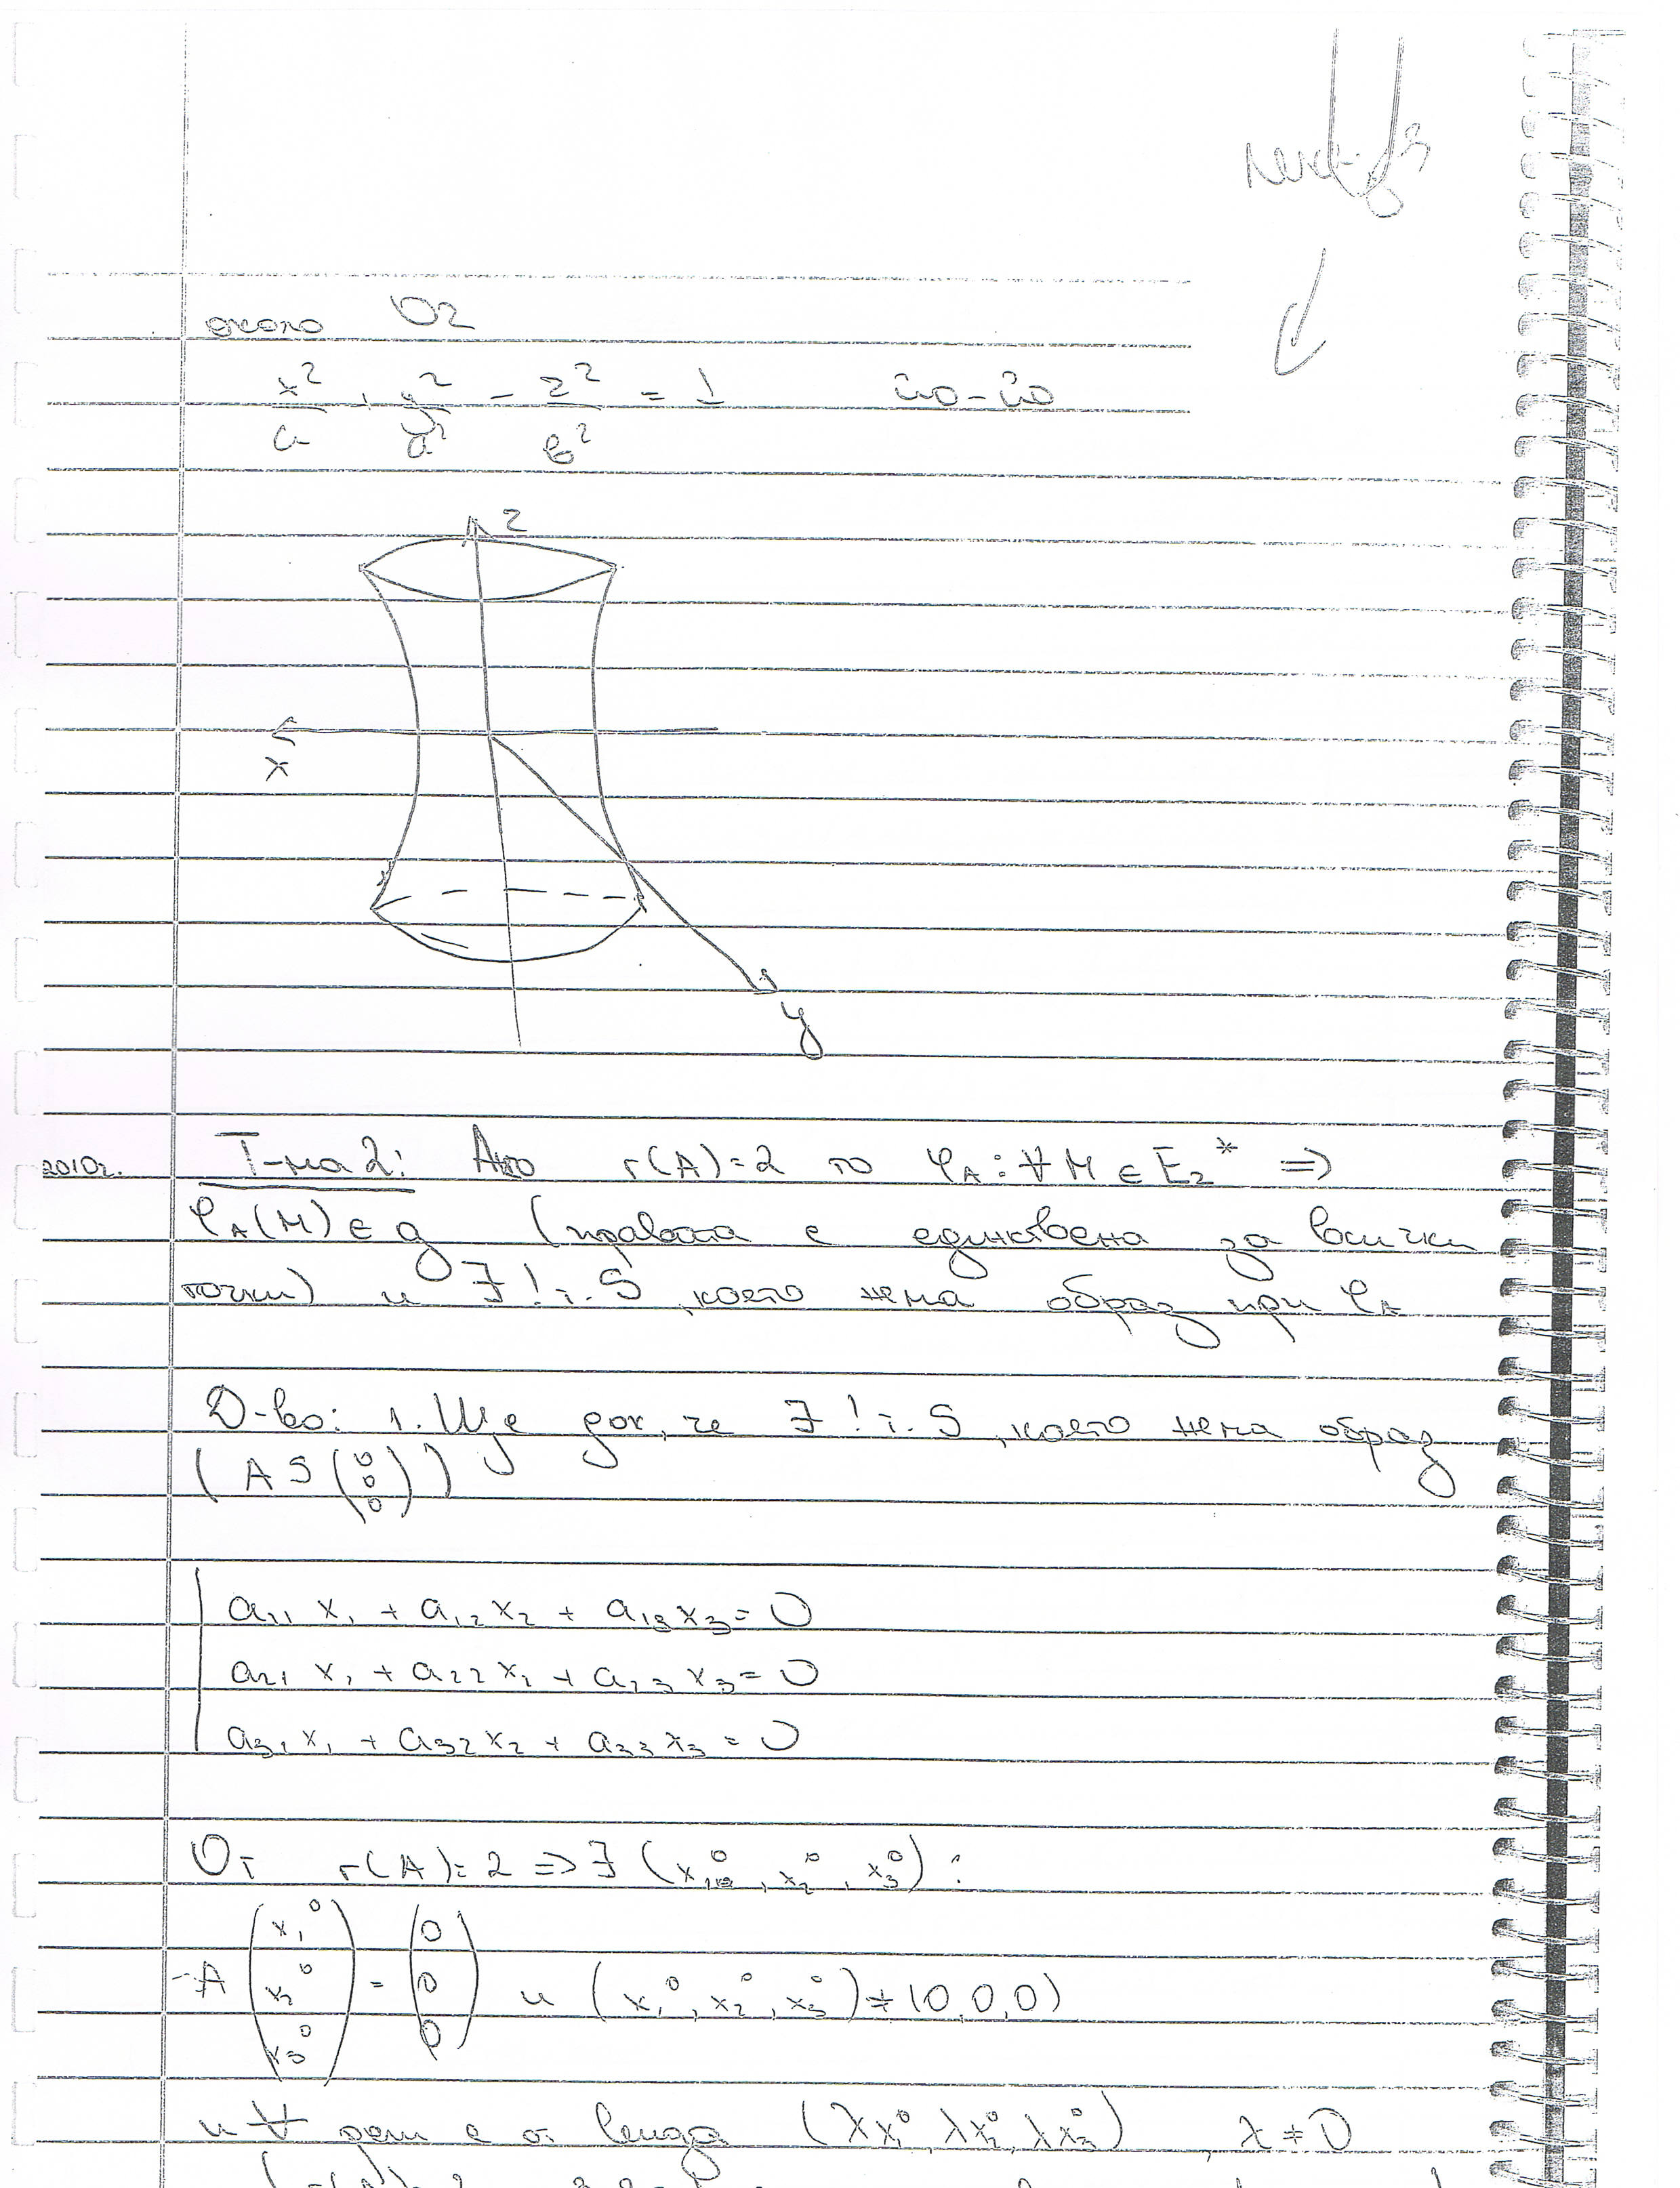 около Oz
x²/a + y²/a² - z²/b² = 1
z
x
y
2010г. Т-ма 2: Ако r(A)=2 то φ_A: ∀ M ∈ E₂* ⇒
φ_A(M) ∈ g (правата е единствена за всички
точки) и ∃! т. S, която няма образ при φ_A
Д-во: 1. Ще док, че ∃! т. S, която няма образ
(A S (0 0 0))
a₁₁ x₁ + a₁₂ x₂ + a₁₃ x₃ = 0
a₂₁ x₁ + a₂₂ x₂ + a₂₃ x₃ = 0
a₃₁ x₁ + a₃₂ x₂ + a₃₃ x₃ = 0
От r(A)=2 ⇒ ∃ (x₁⁰, x₂⁰, x₃⁰):
A (x₁⁰ x₂⁰ x₃⁰) = (0 0 0) и (x₁⁰, x₂⁰, x₃⁰) ≠ (0,0,0)
и ∀ реш е от вида (λx₁⁰, λx₂⁰, λx₃⁰), λ ≠ 0